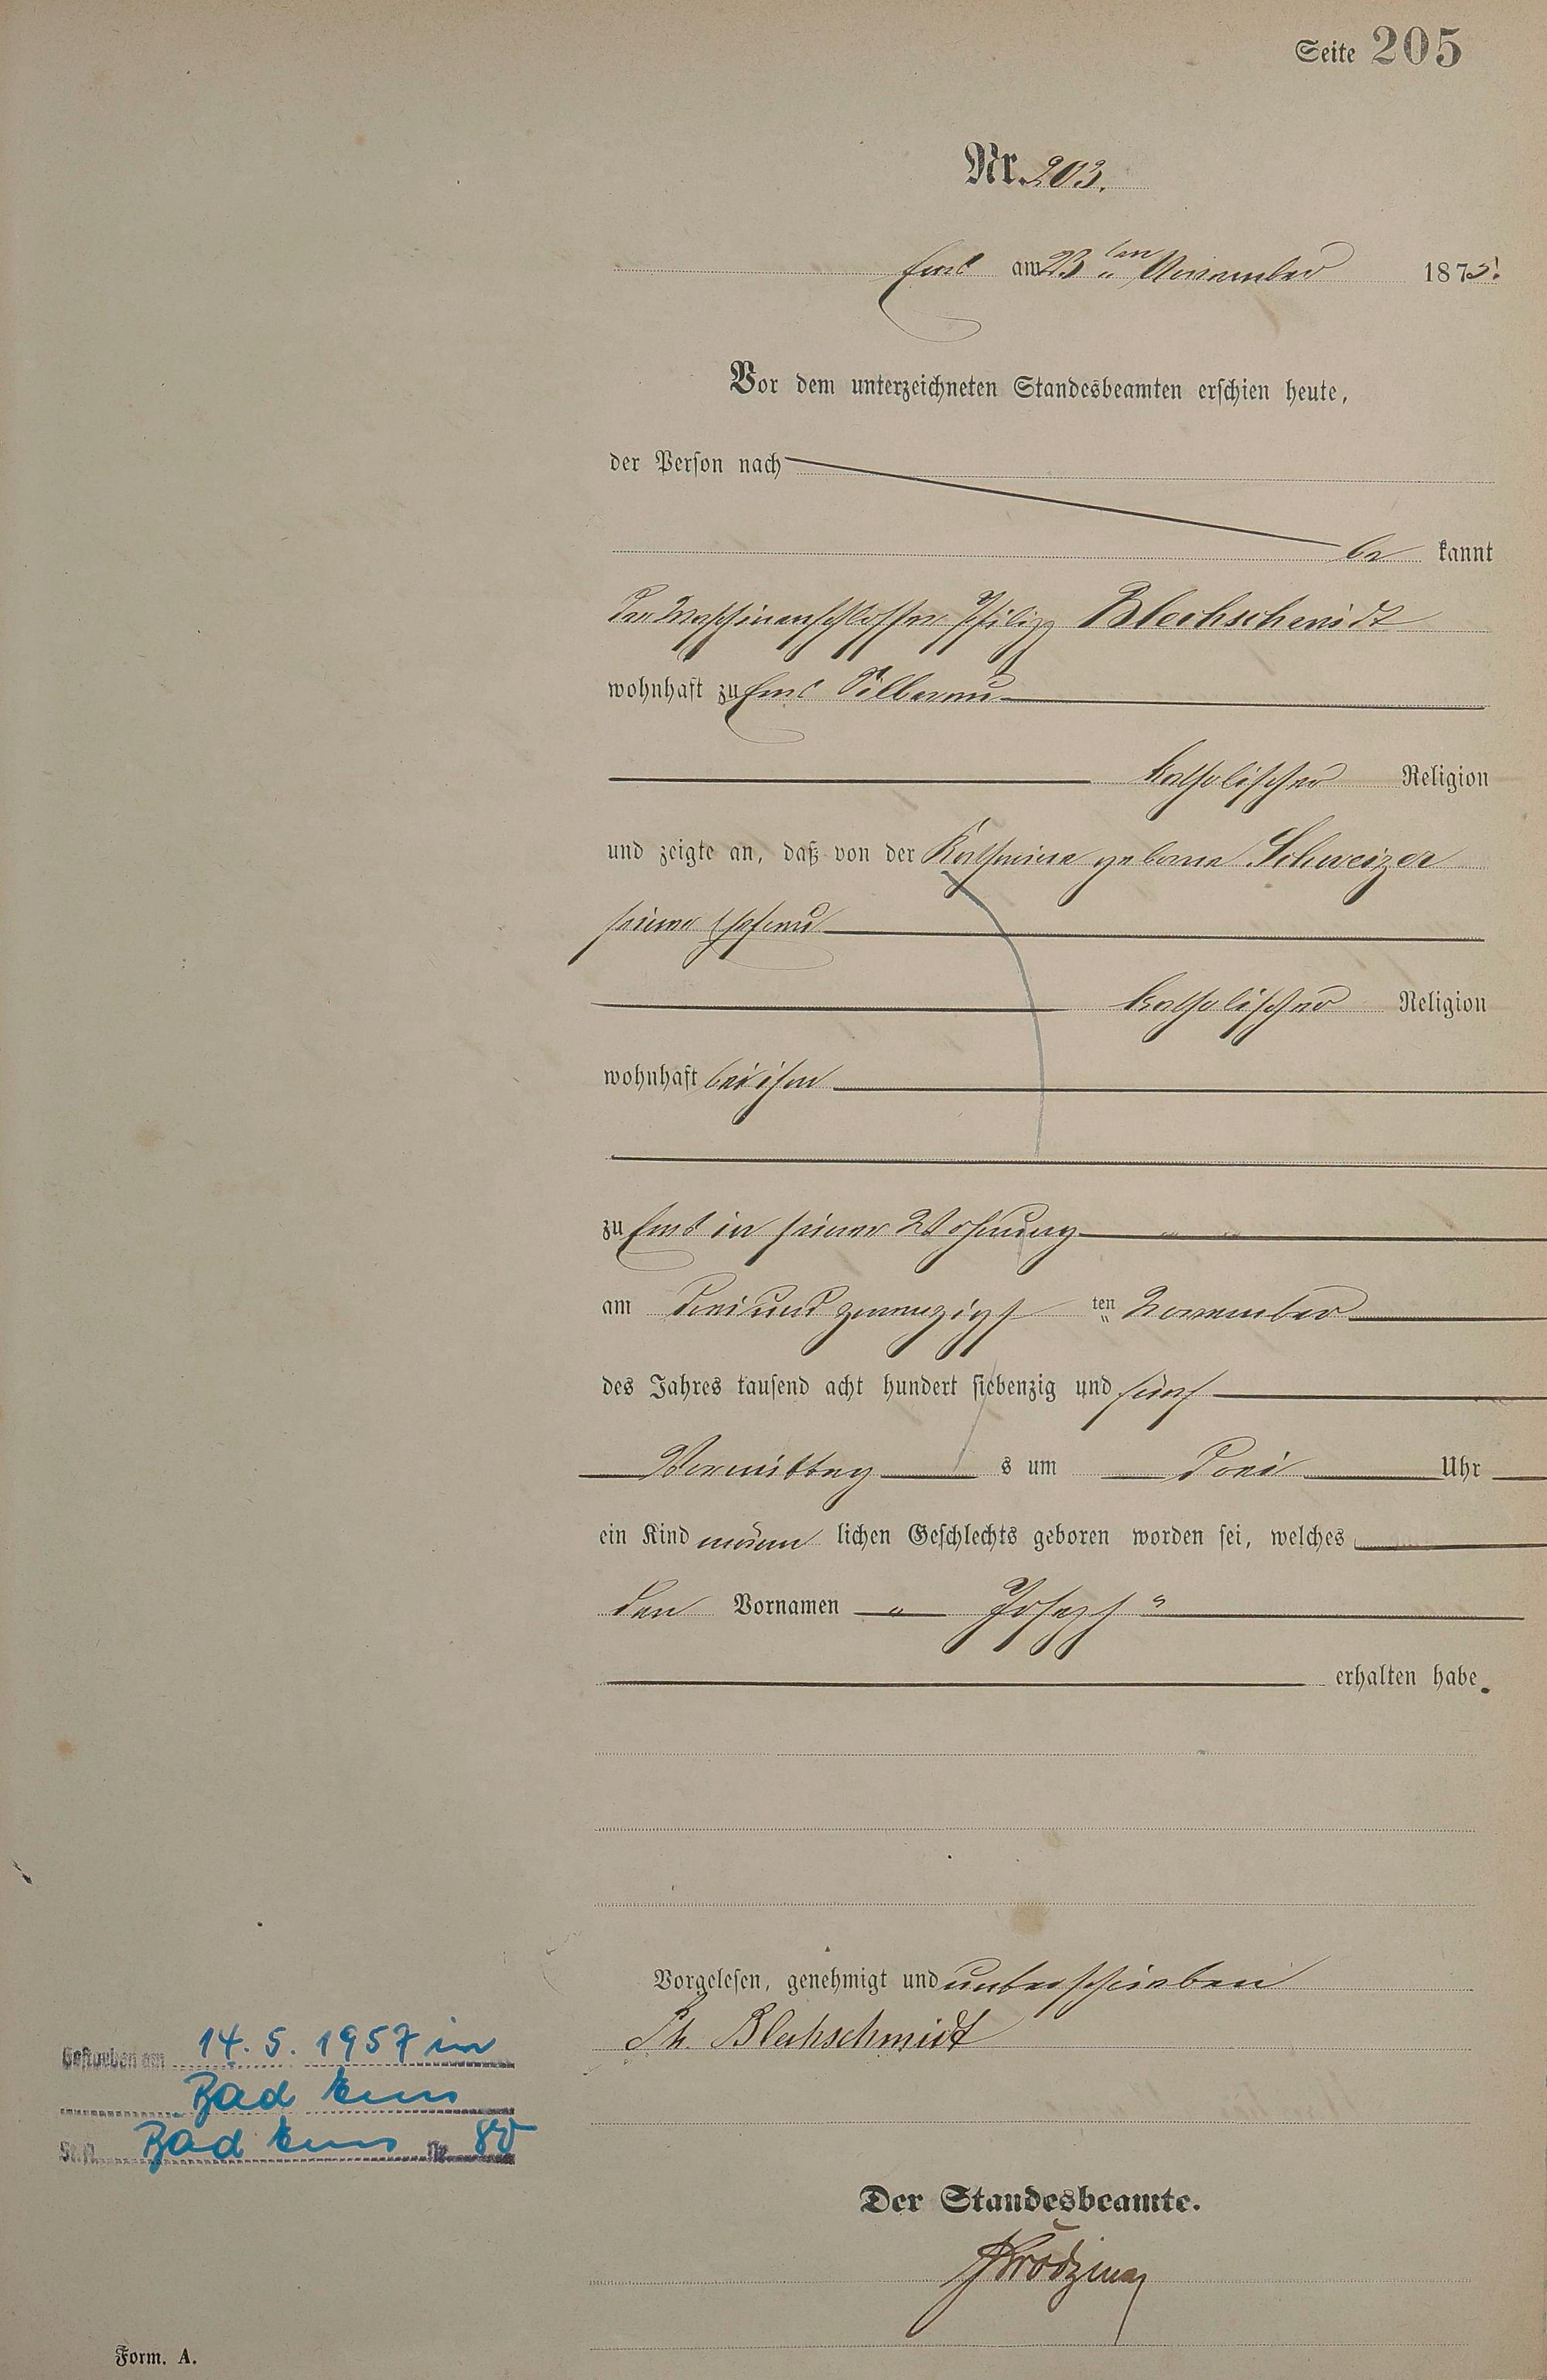 Seite 205
Nr. 203.
Ems am 23ten November 1875.
Vor dem unterzeichneten Standesbeamten erschien heute,
der Person nach
be kannt
der Maschinenschlosser Philipp Blechschmidt
wohnhaft zu Ems Silberau
katholischer Religion
und zeigte an, daß von der Katharina geborne Schweizer
seiner Ehefrau
katholischer Religion
wohnhaft bei ihm
zu Ems in seiner Wohnung
am drei und zwanzigst ten November
des Jahres tausend acht hundert siebenzig und fünf
Vormittag s um drei Uhr
ein Kind männ lichen Geschlechts geboren worden sei, welches
den Vornamen „ Joseph “
erhalten habe.
Vorgelesen, genehmigt und unterschrieben
Ph. Blechschmidt
Gestorben am 14. 5. 1957 in
Bad Ems
St.A. Bad Ems Nr. 80
Der Standesbeamte.
Form. A.